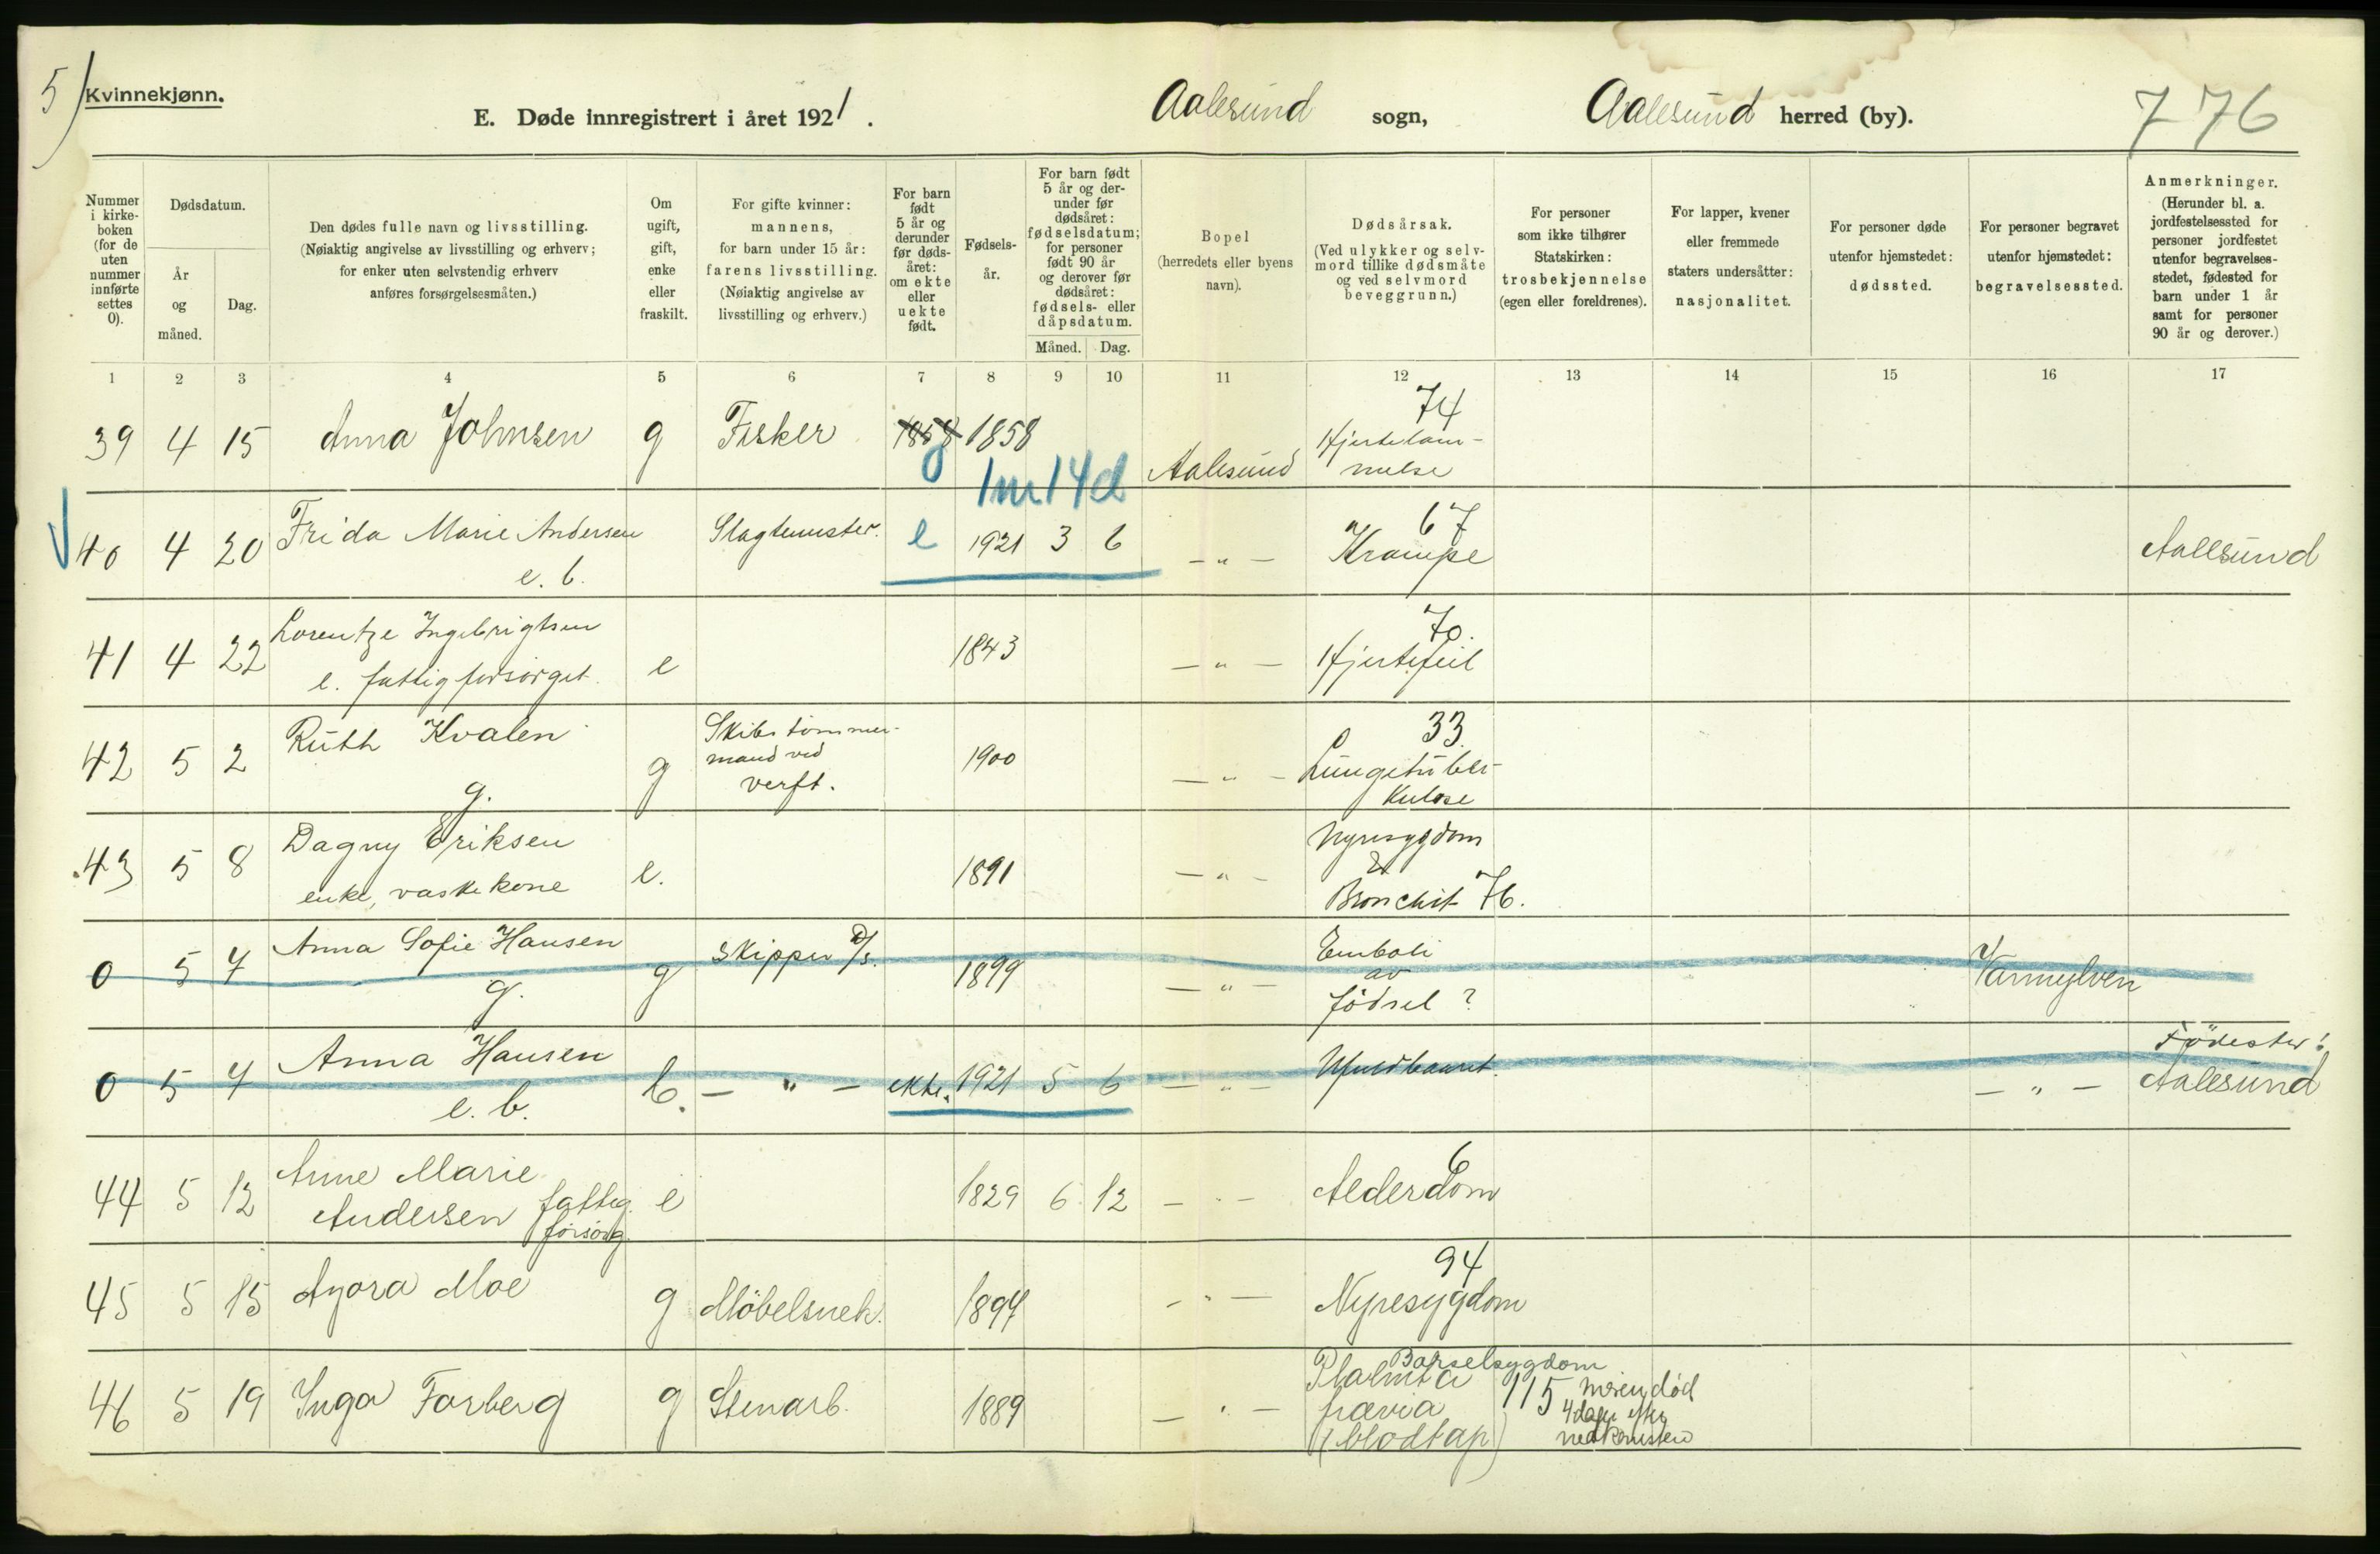 5)
Kvinnekjønn.
E. Døde innregistrert i året 1921.
Aalesund sogn,
Aalesund herred (by).
776
Nummer
i kirke-
boken
(for de
uten
nummer
innførte
settes
0).
Dødsdatum.
År
og
måned.
Dag.
Den dødes fulle navn og livsstilling.
(Nøiaktig angivelse av livsstilling og erhverv;
for enker uten selvstendig erhverv
anføres forsørgelsesmåten.)
Om
ugift,
gift,
enke
eller
fraskilt.
For gifte kvinner:
mannens,
for barn under 15 år:
farens livsstilling.
(Nøiaktig angivelse av
livsstilling og erhverv.)
For barn
født
5 år og
derunder
før døds-
året:
om ekte
eller
uekte
født.
Fødsels-
år.
For barn født
5 år og der-
under før
dødsåret:
fødselsdatum;
for personer
født 90 år
og derover før
dødsåret:
fødsels- eller
dåpsdatum.
Måned. Dag.
Bopel
(herredets eller byens
navn).
Dødsårsak.
(Ved ulykker og selv-
mord tillike dødsmåte
og ved selvmord
beveggrunn.)
For personer
som ikke tilhører
Statskirken:
trosbekjennelse
(egen eller foreldrenes).
For lapper, kvener
eller fremmede
staters undersåtter:
nasjonalitet.
For personer døde
utenfor hjemstedet:
dødssted.
For personer begravet
utenfor hjemstedet:
begravelsessted.
Anmerkninger.
(Herunder bl. a.
jordfestelsessted for
personer jordfestet
utenfor begravelses-
stedet, fødested for
barn under 1 år
samt for personer
90 år og derover.)
1 2 3 4 5 6 7 8 9 10 11 12 13 14 15 16 17
39 4 15 Anna Johnsen g Fisker 1858 1858 Aalesund
74
Hjertelam-
melse
1m 14d
40 4 20 Frida Marie Andersen
e. b.
Slagtemester. e 1921 3 6 — " —
67
Krampe
Aalesund
41 4 22 Lorentze Ingebrigtsen
e. fattigforsørget.
e 1843 — " —
70.
Hjertefeil
42 5 2 Ruth Kvalen
g.
g
Skibstømmer-
mand ved
verft.
1900 — " —
33.
Lungetuber-
kulose
43 5 8 Dagny Eriksen
enke, vaskekone
e. 1891 — " —
Nyresygdom
&
Bronchit 76.
0 5 7 Anna Sofie Hansen
g.
g Skipper D/s. 1899 — " —
Emboli
av
fødsel ?
Vannylven
0 5 7 Anna Hansen
e. b.
b. — " — ekte. 1921 5 6 — " —
Ufuldbaaret.
— " —
Fødested:
Aalesund
44 5 12 Anne Marie
Andersen fattig
forsørg.
e 1829 6 12 — " —
6
Alderdom
45 5 15 Agora Moe g Møbelsnek. 1897 — " —
94
Nyresygdom
46 5 19 Inga Farberg g Stenarb. 1889 — " —
Barselsygdom
Placenta
prævia
(blodtap)
115
død
4 dage efter
nedkomsten